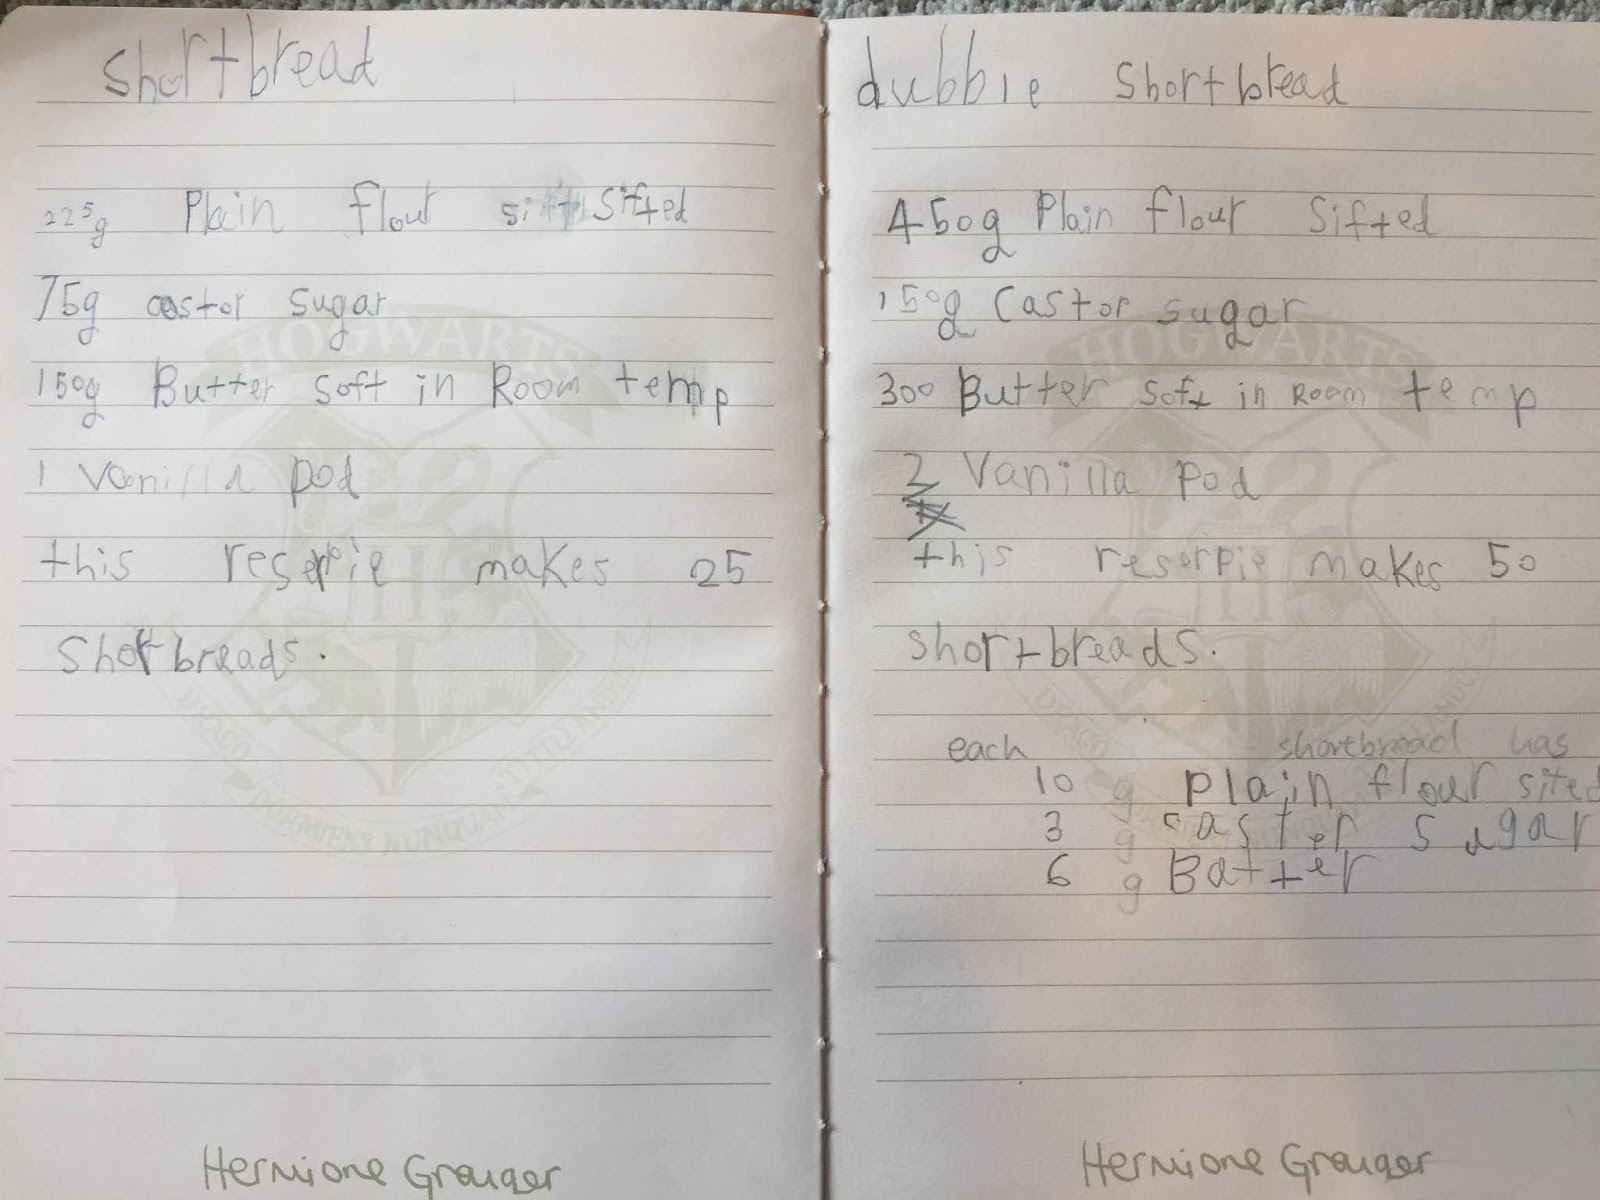 Shortbread
225g Plain flour sift Sifted
75g castor sugar
150g Butter soft in Room temp
1 Vanilla pod
this reserpie makes 25
Shortbreads.
HOGWARTS
DRACO DORMIENS NUNQUAM TITILLANDUS
Hermione Granger
dubble Shortbread
450g Plain flour Sifted
150g Castor sugar
300 Butter soft in Room temp
2 Vanilla pod
this reserpie makes 50
shortbreads.
each shortbread has
10 g plain flour sited
3 g caster sugar
6 g Batter
HOGWARTS
DRACO DORMIENS NUNQUAM TITILLANDUS
Hermione Granger